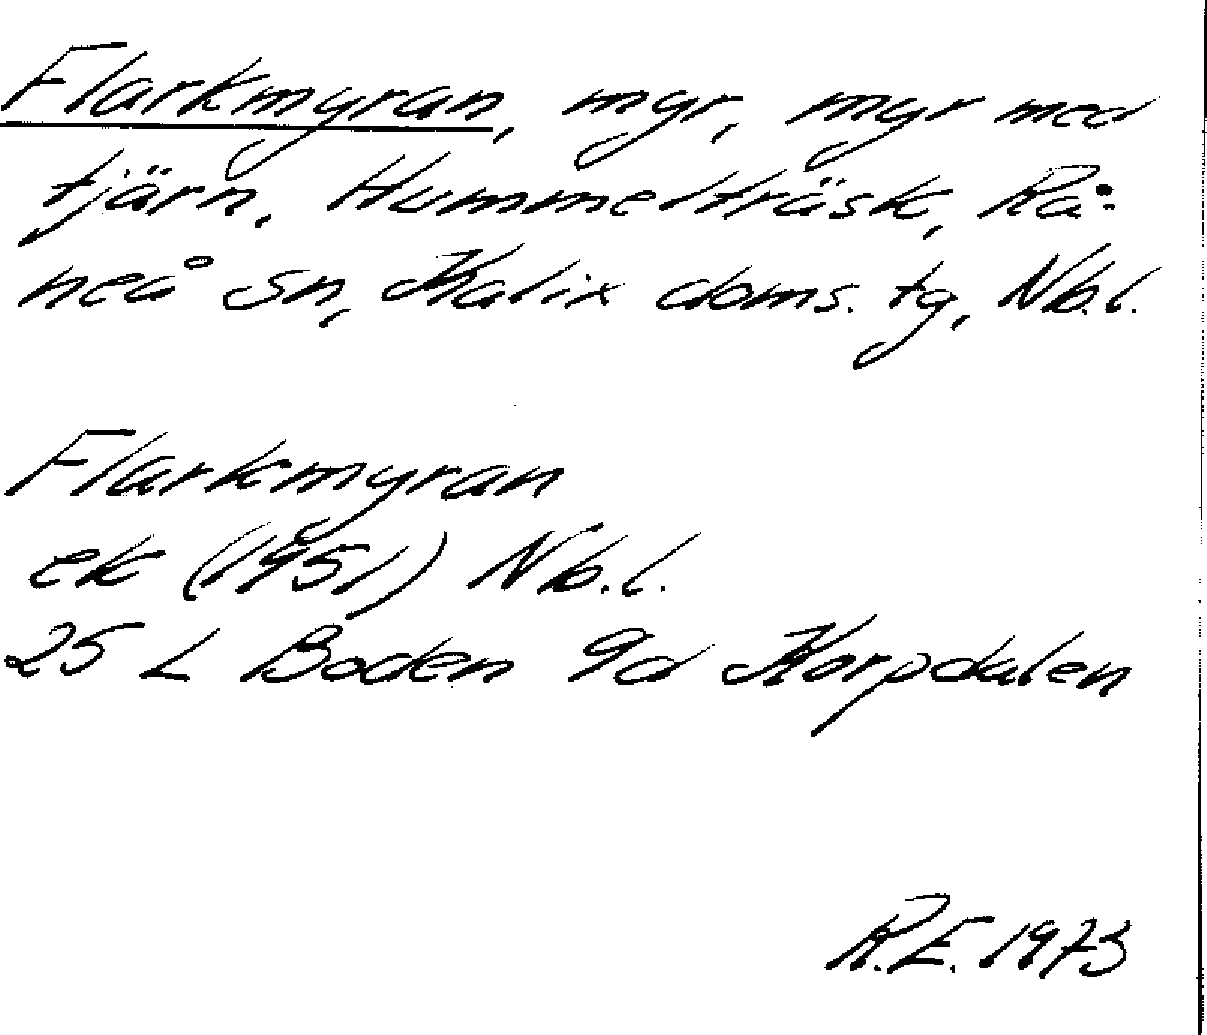 Flarkmyran, myr, myr med
tjärn, Hummelträsk, Rå-
neå sn, Kalix doms. tg, Nb.l.
Flarkmyran
ek (1951) Nb.l.
25 L Boden 9d Korpdalen
R.E. 1973